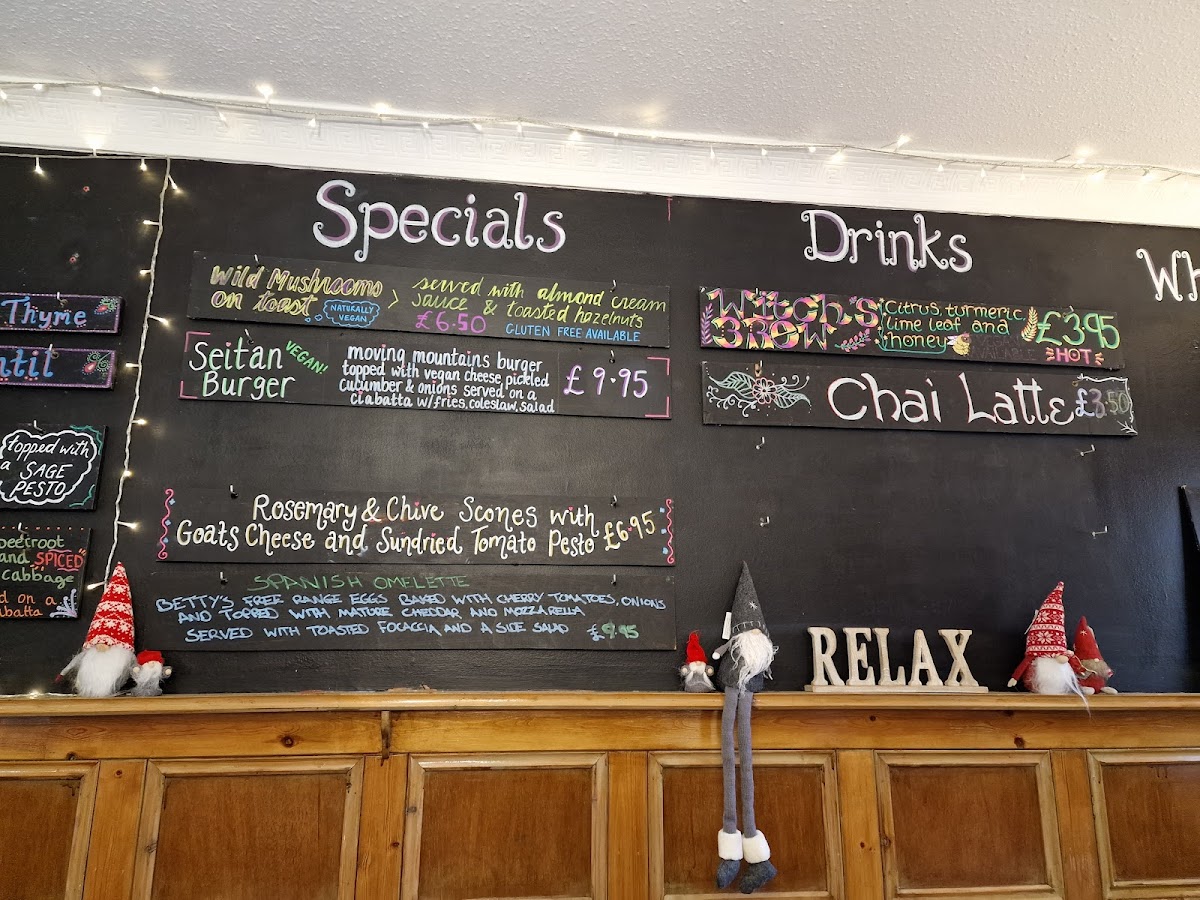 Thyme
topped with
a SAGE
PESTO
and SPICED
cabbage
d on a
Specials
Wild Mushrooms
on toast
NATURALLY
VEGAN
served with almond cream
sauce & toasted hazelnuts
£6.50 GLUTEN FREE AVAILABLE
Seitan
Burger
VEGAN!
moving mountains burger
topped with vegan cheese, pickled
cucumber & onions served on a
ciabatta w/fries, coleslaw, salad
£9.95
Rosemary & Chive Scones with
Goats Cheese and Sundried Tomato Pesto £6.95
SPANISH OMELETTE
BETTY'S FREE RANGE EGGS BAKED WITH CHERRY TOMATOES, ONIONS
AND TOPPED WITH MATURE CHEDDAR AND MOZZARELLA
SERVED WITH TOASTED FOCACCIA AND A SIDE SALAD £9.95
Drinks
Witch's
Brew
Citrus, turmeric,
lime leaf and
honey
£3.95
HOT
Chai Latte £3.50
Wh
RELAX